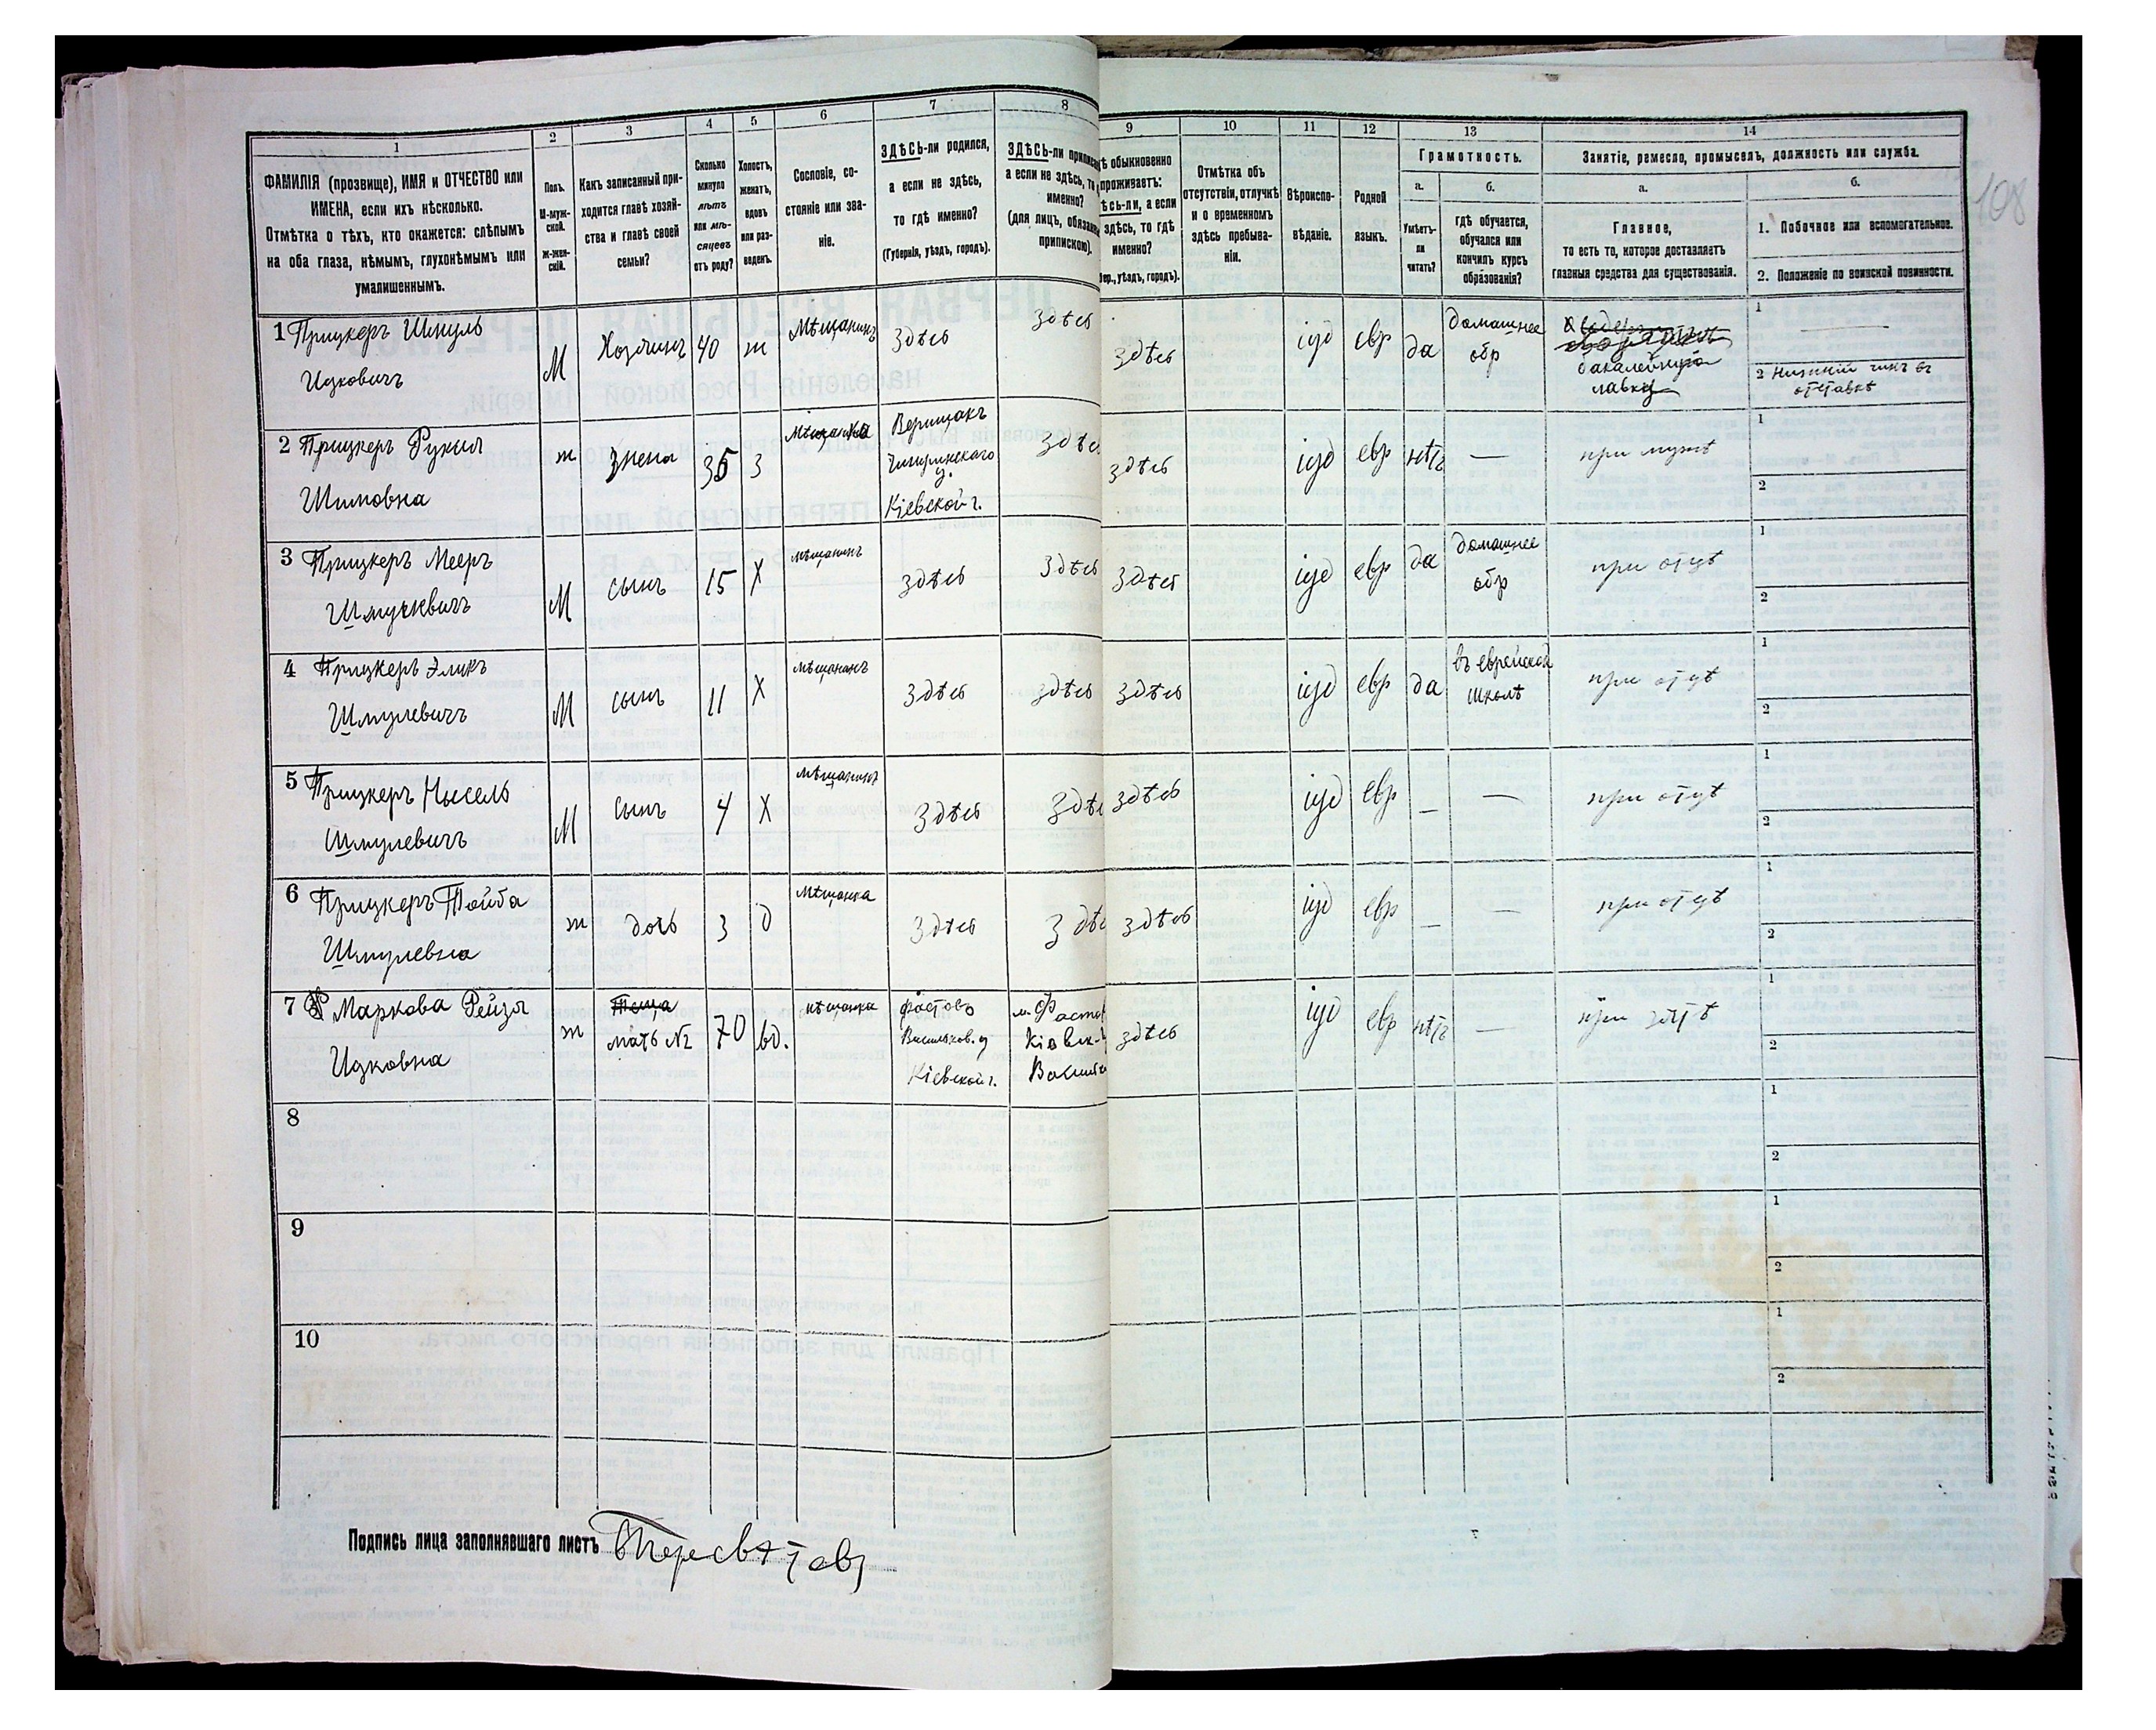 1 2 3 4 5 6 7 8 9 10 11 12 13 14
ФАМИЛІЯ (прозвище), ИМЯ и ОТЧЕСТВО или
ИМЕНА, если ихъ нѣсколько.
Отмѣтка о тѣхъ, кто окажется: слѣпымъ
на оба глаза, нѣмымъ, глухонѣмымъ или
умалишеннымъ.
Полъ.
М-муж-
ской.
Ж-жен-
скій.
Какъ записанный при-
ходится главѣ хозяй-
ства и главѣ своей
семьи?
Сколько
минуло
лѣтъ
или мѣ-
сяцевъ
отъ роду?
Холостъ,
женатъ,
вдовъ
или раз-
веденъ.
Сословіе, со-
стояніе или зва-
ніе.
ЗДѢСЬ-ли родился,
а если не здѣсь,
то гдѣ именно?
(Губернія, уѣздъ, городъ).
ЗДѢСЬ-ли приписан
а если не здѣсь, то
именно?
(для лицъ, обязанн
припискою).
ѣ обыкновенно
проживаетъ:
ѣсь-ли, а если
здѣсь, то гдѣ
именно?
бер., уѣздъ, городъ).
Отмѣтка объ
отсутствіи, отлучкѣ
и о временномъ
здѣсь пребыва-
ніи.
Вѣроиспо-
вѣданіе.
Родной
языкъ.
Грамотность.
а. б.
Умѣетъ-
ли
читать?
гдѣ обучается,
обучался или
кончилъ курсъ
образованія?
Занятіе, ремесло, промыселъ, должность или служба.
а. б.
Главное,
то есть то, которое доставляетъ
главныя средства для существованія.
1. Побочное или вспомогательное.
2. Положеніе по воинской повинности.
108
1 Прицкеръ Шмуль
Ицковичъ
М
Хозяинъ
40
ж
Мѣщанинъ
Здѣсь
Здѣсь
Здѣсь
іуд
евр
да
домашнее
обр
бакалейная
лавка
1 —
2 Нижній чинъ въ
отставкѣ
2 Прицкеръ Рухля
Шимовна
ж
жена
35
З
Мѣщанка
Чигиринскаго
у.
Кіевской г.
Здѣс
Здѣсь
іуд
евр
нѣтъ
—
при мужѣ
1
2
3 Прицкеръ Мееръ
М
сынъ
15
Х
мѣщанинъ
здѣсь
Здѣсь
Здѣсь
іуд
евр
да
домашнее
обр
при отцѣ
1
2
4 Прицкеръ Эликъ
Шмулевичъ
М
сынъ
11
Х
мѣщанинъ
Здѣсь
Здѣсь
Здѣсь
іуд
евр
да
въ еврейской
школѣ
при отцѣ
1
2
5 Прицкеръ Нысель
Шмулевичъ
М
сынъ
4
Х
мѣщанинъ
Здѣсь
Здѣс
Здѣсь
іуд
евр
—
—
при отцѣ
1
2
6 Прицкеръ Тойба
Шмулевна
ж
дочь
3
д
мѣщанка
Здѣсь
Здѣс
Здѣсь
іуд
евр
—
—
при отцѣ
1
2
7 Маркова Рейзя
Ицковна
ж
Теща
мать №2
70
вд.
мѣщанка
Фастовъ
Васильков. у
Кіевской г.
м. Фастов
Кіевск-
Васильк
здѣсь
іуд
евр
нѣтъ
—
при зятѣ
1
2
8
1
2
9
1
2
10
1
2
Подпись лица заполнявшаго листъ